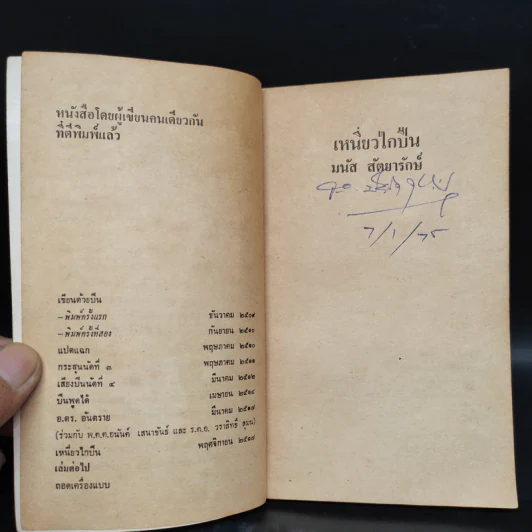 หนังสือโดยผู้เขียนคนเดียวกัน
ที่ตีพิมพ์แล้ว
เขียนด้วยปืน
–พิมพ์ครั้งแรก ธันวาคม ๒๕๐๙
–พิมพ์ครั้งที่สอง กันยายน ๒๕๑๐
แปดแฉก พฤษภาคม ๒๕๑๐
กระสุนนัดที่ ๓ พฤษภาคม ๒๕๑๑
เสียงปืนนัดที่ ๔ มีนาคม ๒๕๑๒
ปืนพูดได้ เมษายน ๒๕๑๔
อ.ตร. อันตราย มีนาคม ๒๕๑๗
(ร่วมกับ พ.ต.ต.อนันต์ เสนาขันธ์ และ ร.ต.อ. วราสิทธิ์ สุมน)
เหนี่ยวไกปืน พฤศจิกายน ๒๕๑๗
เล่มต่อไป
ถอดเครื่องแบบ
เหนี่ยวไกปืน
มนัส สัตยารักษ์
7/1/75